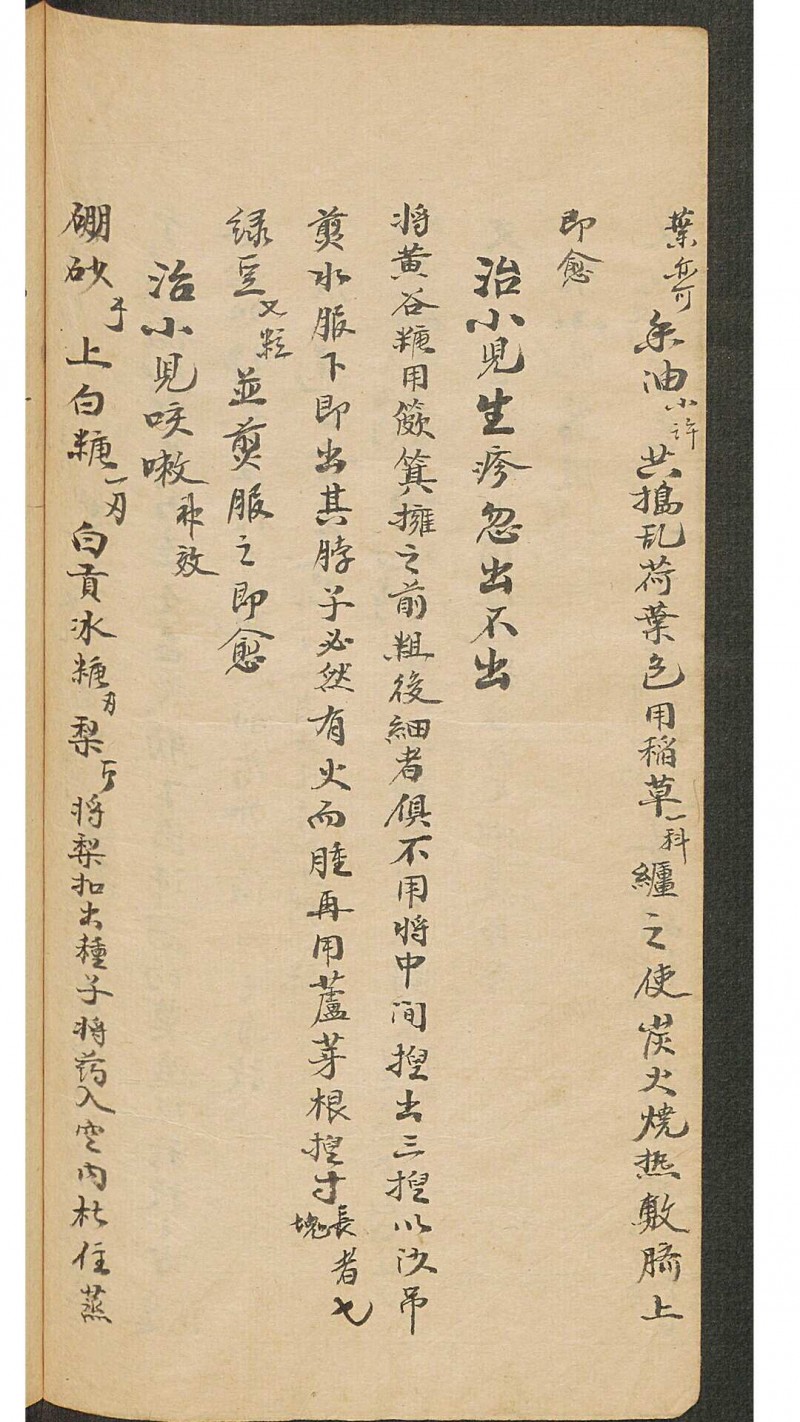 葉亦可 香油小許 共搗乱荷葉包用稻草一科纏之使炭火燒热敷臍上
即愈
治小児生疹忽出不出
将黄谷糠用簸箕擁之前粗後細者俱不用将中间揑出三揑以沙吊
煎水服下即出其脖子必然有火而腫再用蘆芽根揑寸長者七塊
绿豆七粒並煎服之即愈
治小児咳嗽神效
硼砂 上白糖一刃 白貢冰糖刃 梨 将梨扣出種子将药入空内杜住蒸